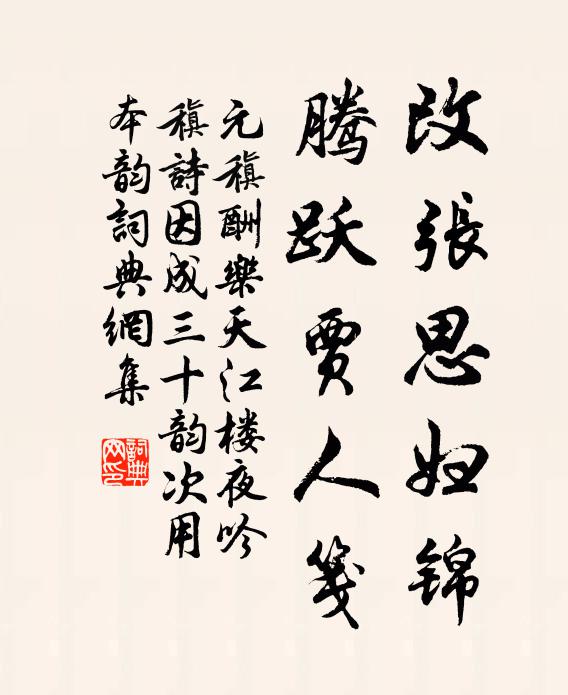 改張思妇锦
腾跃贾人箋
元稹酬樂天江楼夜吟
稹詩因成三十韵次用
本韵詞典網集
詞典網印